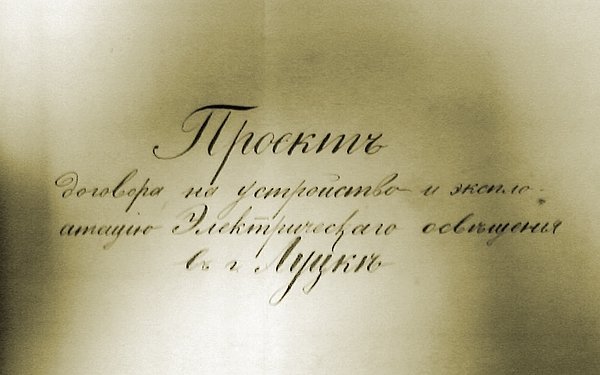 Проектъ
договора на устройство и экспло-
атацію Электрическаго освѣщенія
въ г. Луцкѣ